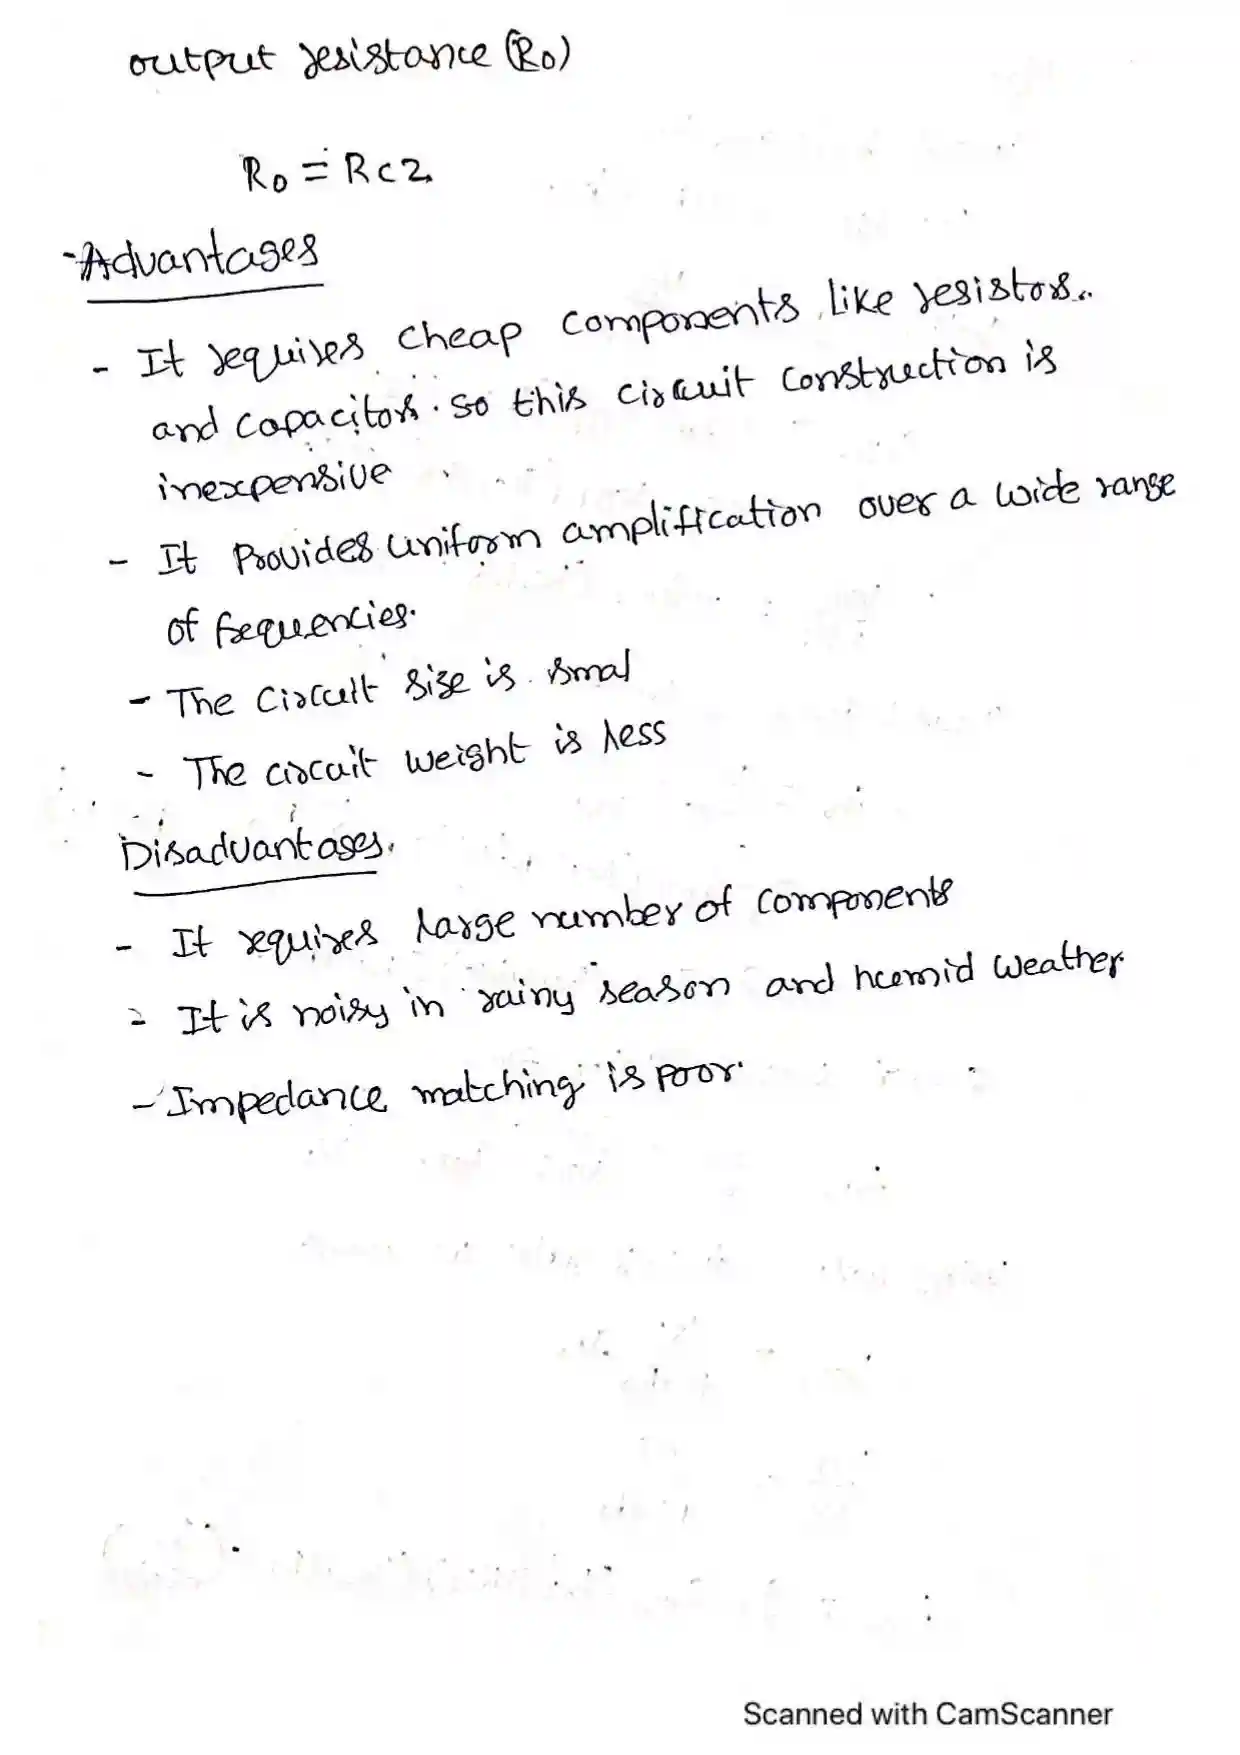 output resistance (Ro)
Ro = Rc2
- Advantages
- It requires cheap components like resistors.
and capacitors. so this circuit construction is
inexpensive
- It Provides uniform amplification over a wide range
of fequencies.
- The circuit size is smal
- The circuit weight is less
Disadvantages.
- It requires large number of components
- It is noisy in rainy season and humid weather
- Impedance matching is poor.
Scanned with CamScanner